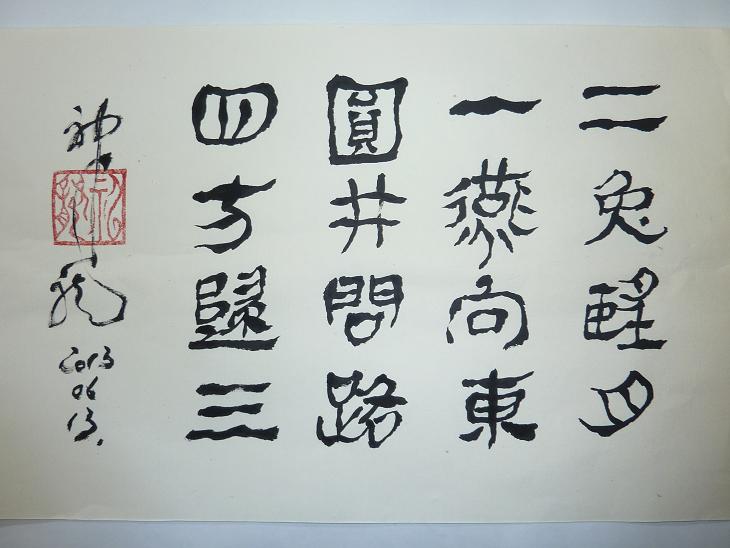 二兔醒月
一燕向東
圓井問路
四方歸三
神龍
2013
06
13.